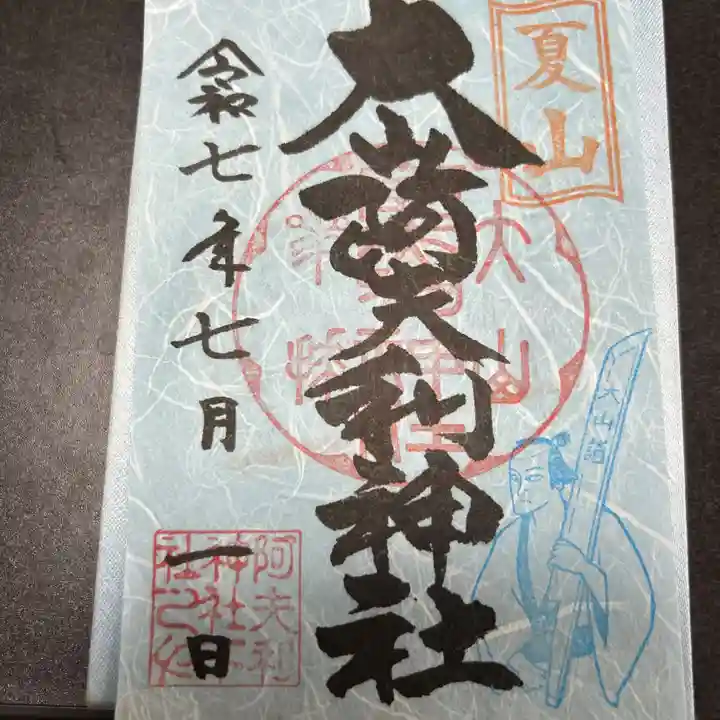 夏山
大山阿夫利神社
令和七年七月一日
大山詣
阿夫利
神社下
社之印